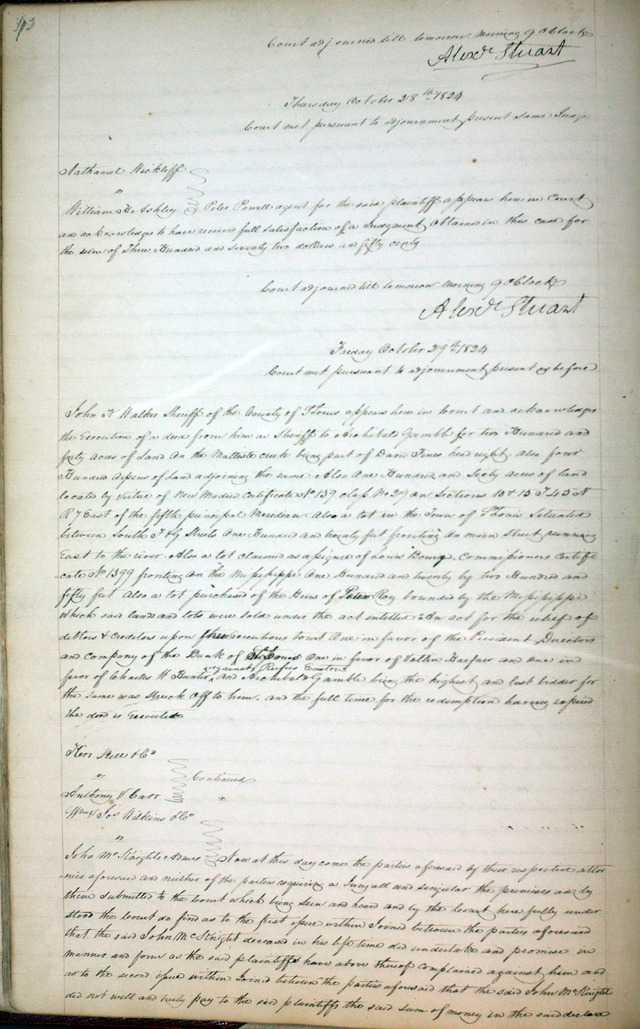 Court adjourned till tomorrow Morning 9 OClock
Alexr Stuart
Thursday October 28th 1824
Court met pursuant to adjournment present same Judge
Nathaniel Wickliff
vs
William H Ashley Peter Powell agent for the said plaintiff appears here in Court
and acknowledges to have receive full Satisfaction of a Judgment Obtained in this case for
the sum of Three Hundred and Seventy two dollars and fifty cents
Court adjourned till tomorrow Morning 9 OClock
Alexr Stuart
Friday October 29th 1824
Court met pursuant to adjournment present as before
John K Walker Sheriff of the County of St Louis appears here in Court and acknowledges
the Execution of a deed from him as Sheriff to Archibald Gamble for two Hundred and
forty acres of Land On the Mattese creek being part of head right also four
Hundred Arpens of Land adjoining the same Also One Hundred and Sixty acres of land
located by Virtue of New Madrid Certificate No 159 on Sections 10 & 15 T 45 N
R 7 East of the fifth principal Meridian Also a lot in the Town of St Louis Situated
between South F & G Streets One Hundred and twenty feet fronting on main Street running
East to the river Also a lot claimed as assignee of Louis Commissioners Certifi
cate No 1399 fronting On the Mississippi One Hundred and twenty by two Hundred and
fifty feet Also a lot purchased of the Heirs of bounded by the Mississippi
which said lands and lots were sold under the act entitled An act for the relief of
debtors & Creditors upon three executions one in favor of the President Directors
and Company of the Bank of St Louis One in favor of and one in
against Rufus Easton
favor of Charles W Hunter, and Archibald Gamble being the highest and last bidder for
the same was Struck Off to him. and the full time for the redemption having expired
the deed is Executed
Kerr Bell & Co
vs Continued
Anthony V Carr
Jos Wilkins & Co
vs
John McKnights Admrs Now at this day come the parties aforesaid by their respective attor
nies aforesaid and neither of the parties requiring a Jury all and singular the premises are by
them submitted to the Court which being seen and heard and by the Court here fully under
stood the Court do find as to the first issue within Joined between the parties aforesaid
that the said John McKnight deceased in his life time did undertake and promise in
manner and form as the said plaintiffs have above thereof complained against him and
as to the second issue within Joined between the parties aforesaid that the said John McKnight
did not well and truly pay to the said plaintiffs the said sum of money in the said declara